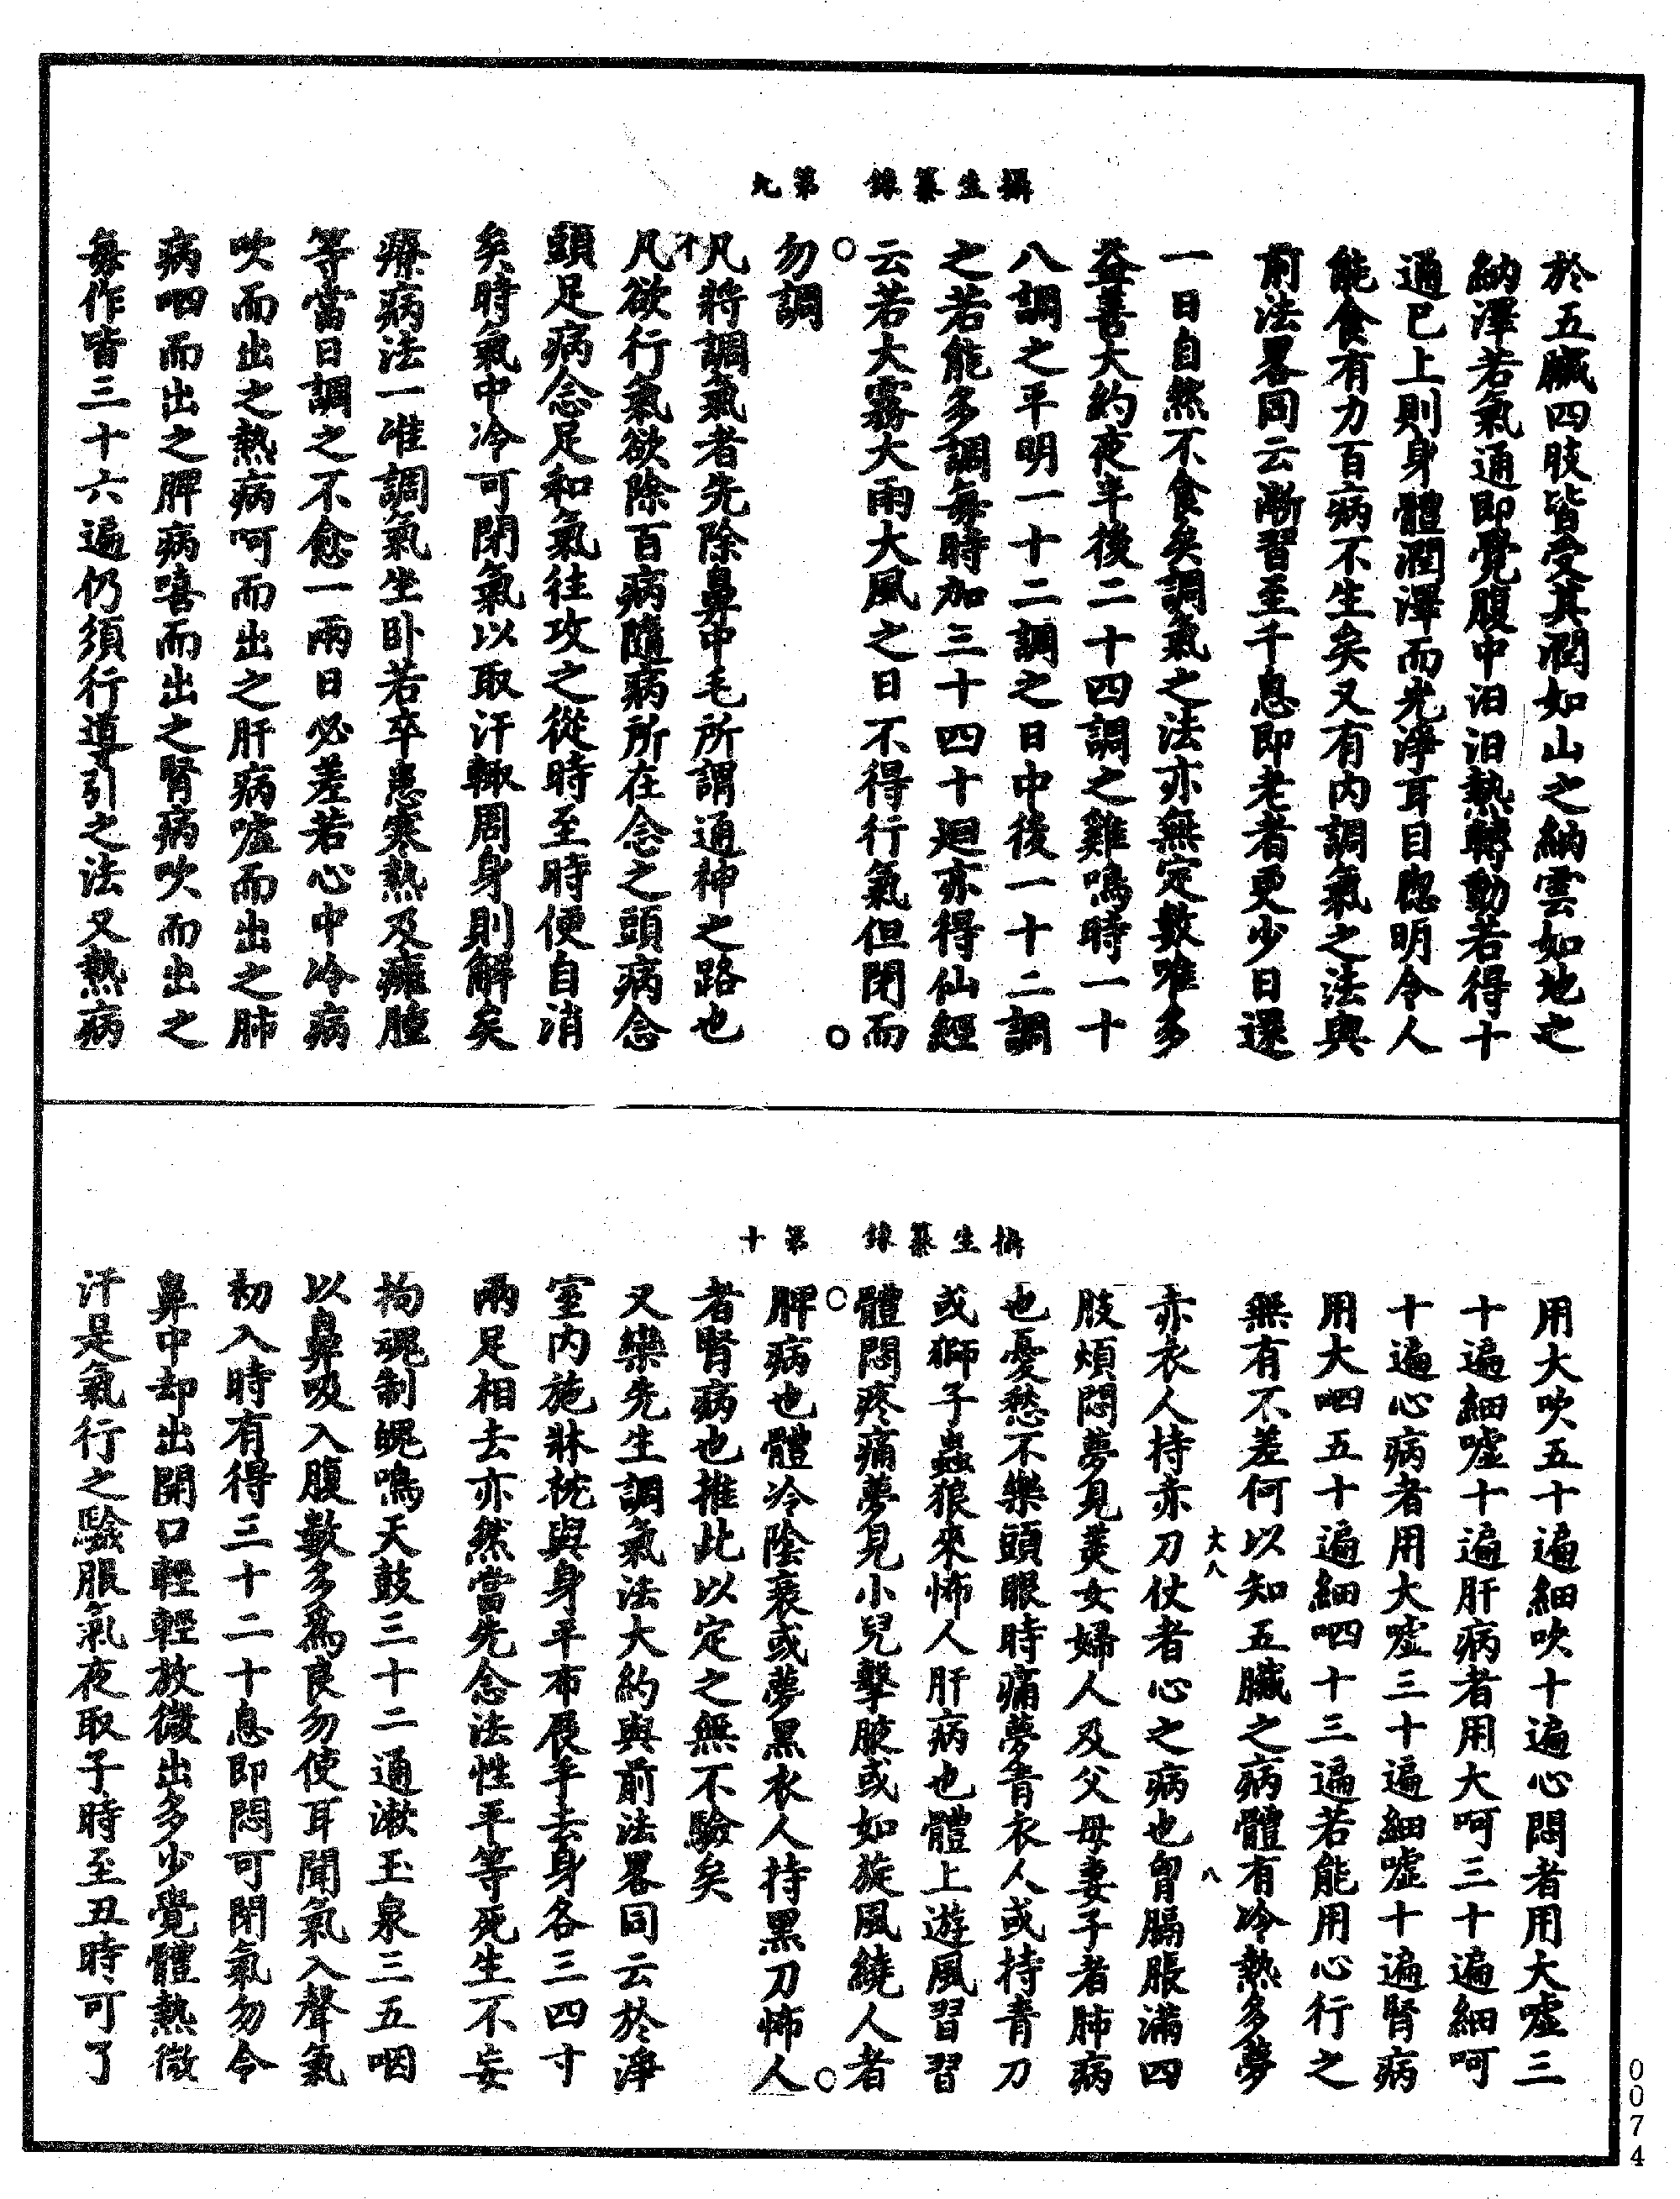 攝生纂錄　第九
於五臟四肢皆受其潤如山之納雲如地之
納澤若氣通即覺腹中汩汩熱轉動若得十
通已上則身體潤澤而光淨耳目聰明令人
能食有力百病不生矣又有內調氣之法與
前法畧同云漸習至千息即老者更少日還
一日自然不食矣調氣之法亦無定數唯多
益善大約夜半後二十四調之雞鳴時一十
八調之平明一十二調之日中後一十二調
之若能多調每時加三十四十廻亦得仙經
云若大霧大雨大風之日不得行氣但閉而
勿調
凡將調氣者先除鼻中毛所謂通神之路也
凡欲行氣欲除百病隨病所在念之頭病念
頭足病念足和氣往攻之從時至時便自消
矣時氣中冷可閉氣以取汗輙周身則解矣
療病法一准調氣坐卧若卒患寒熱及癰腫
等當日調之不愈一兩日必差若心中冷病
吹而出之熱病呵而出之肝病噓而出之肺
病呬而出之脾病嘻而出之腎病吹而出之
每作皆三十六遍仍須行導引之法又熱病
攝生纂錄　第十
用大吹五十遍細吹十遍心悶者用大噓三
十遍細噓十遍肝病者用大呵三十遍細呵
十遍心病者用大噓三十遍細噓十遍腎病
用大呬五十遍細呬十三遍若能用心行之
無有不差何以知五臟之病體有冷熱多夢
大八
八
赤衣人持赤刀仗者心之病也胷膈脹滿四
肢煩悶夢見羙女婦人及父母妻子者肺病
也憂愁不樂頭眼時痛夢青衣人或持青刀
或獅子蟲狼來怖人肝病也體上遊風習習
體悶疼痛夢見小兒擊腋或如旋風繞人者
脾病也體冷陰衰或夢黑衣人持黑刀怖人
者腎病也推此以定之無不驗矣
又欒先生調氣法大約與前法畧同云於淨
室內施牀枕與身平布展手去身各三四寸
兩足相去亦然當先念法性平等死生不妄
拘魂制魄鳴天鼓三十二通漱玉泉三五咽
以鼻吸入腹數多爲良勿使耳聞氣入聲氣
初入時有得三十二十息即悶可閉氣勿令
鼻中却出開口輕輕放微出多少覺體熱微
汗是氣行之驗服氣夜取子時至丑時可了
0074